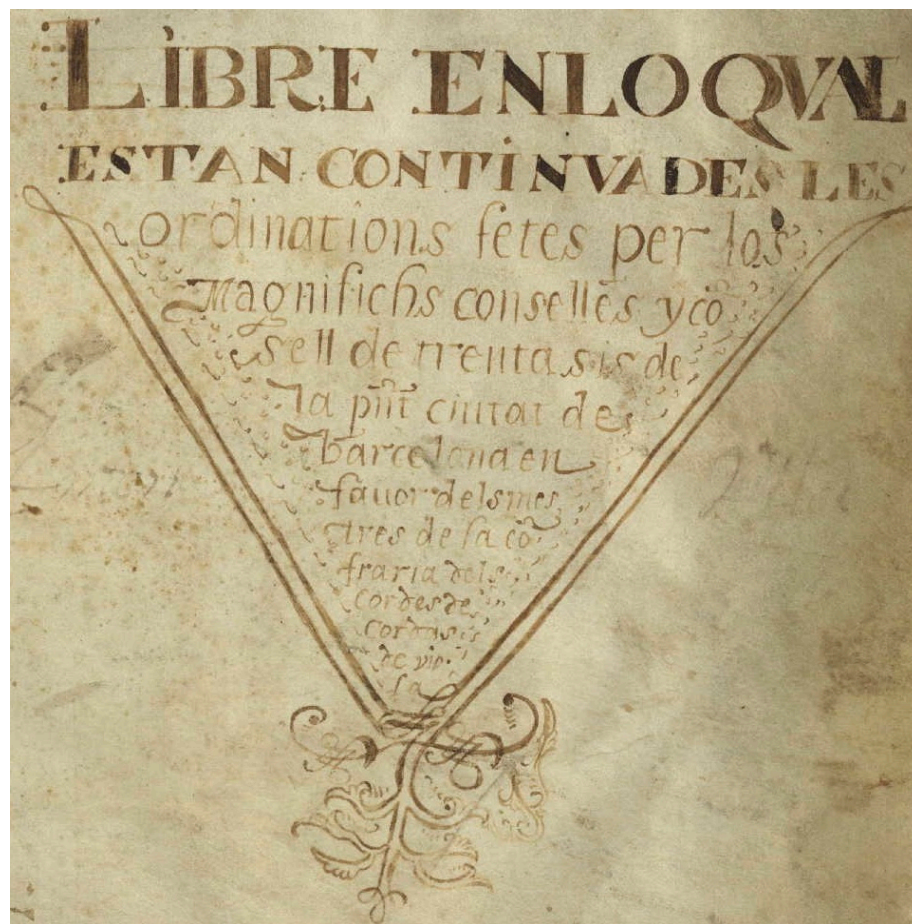 LIBRE EN LO QVAL
ESTAN CONTINVADES LES
ordinations fetes per los
Magnifichs consellēs y cō
sell de trenta sis de
la pn̄t ciutat de
barcelona en
fauor dels mes
tres de la cō
fraria dels
cordes de
cordas
de vio
la